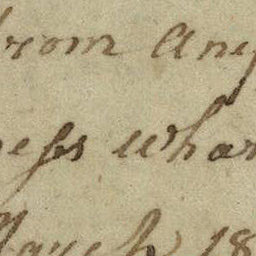 from any
ness whar
March 18